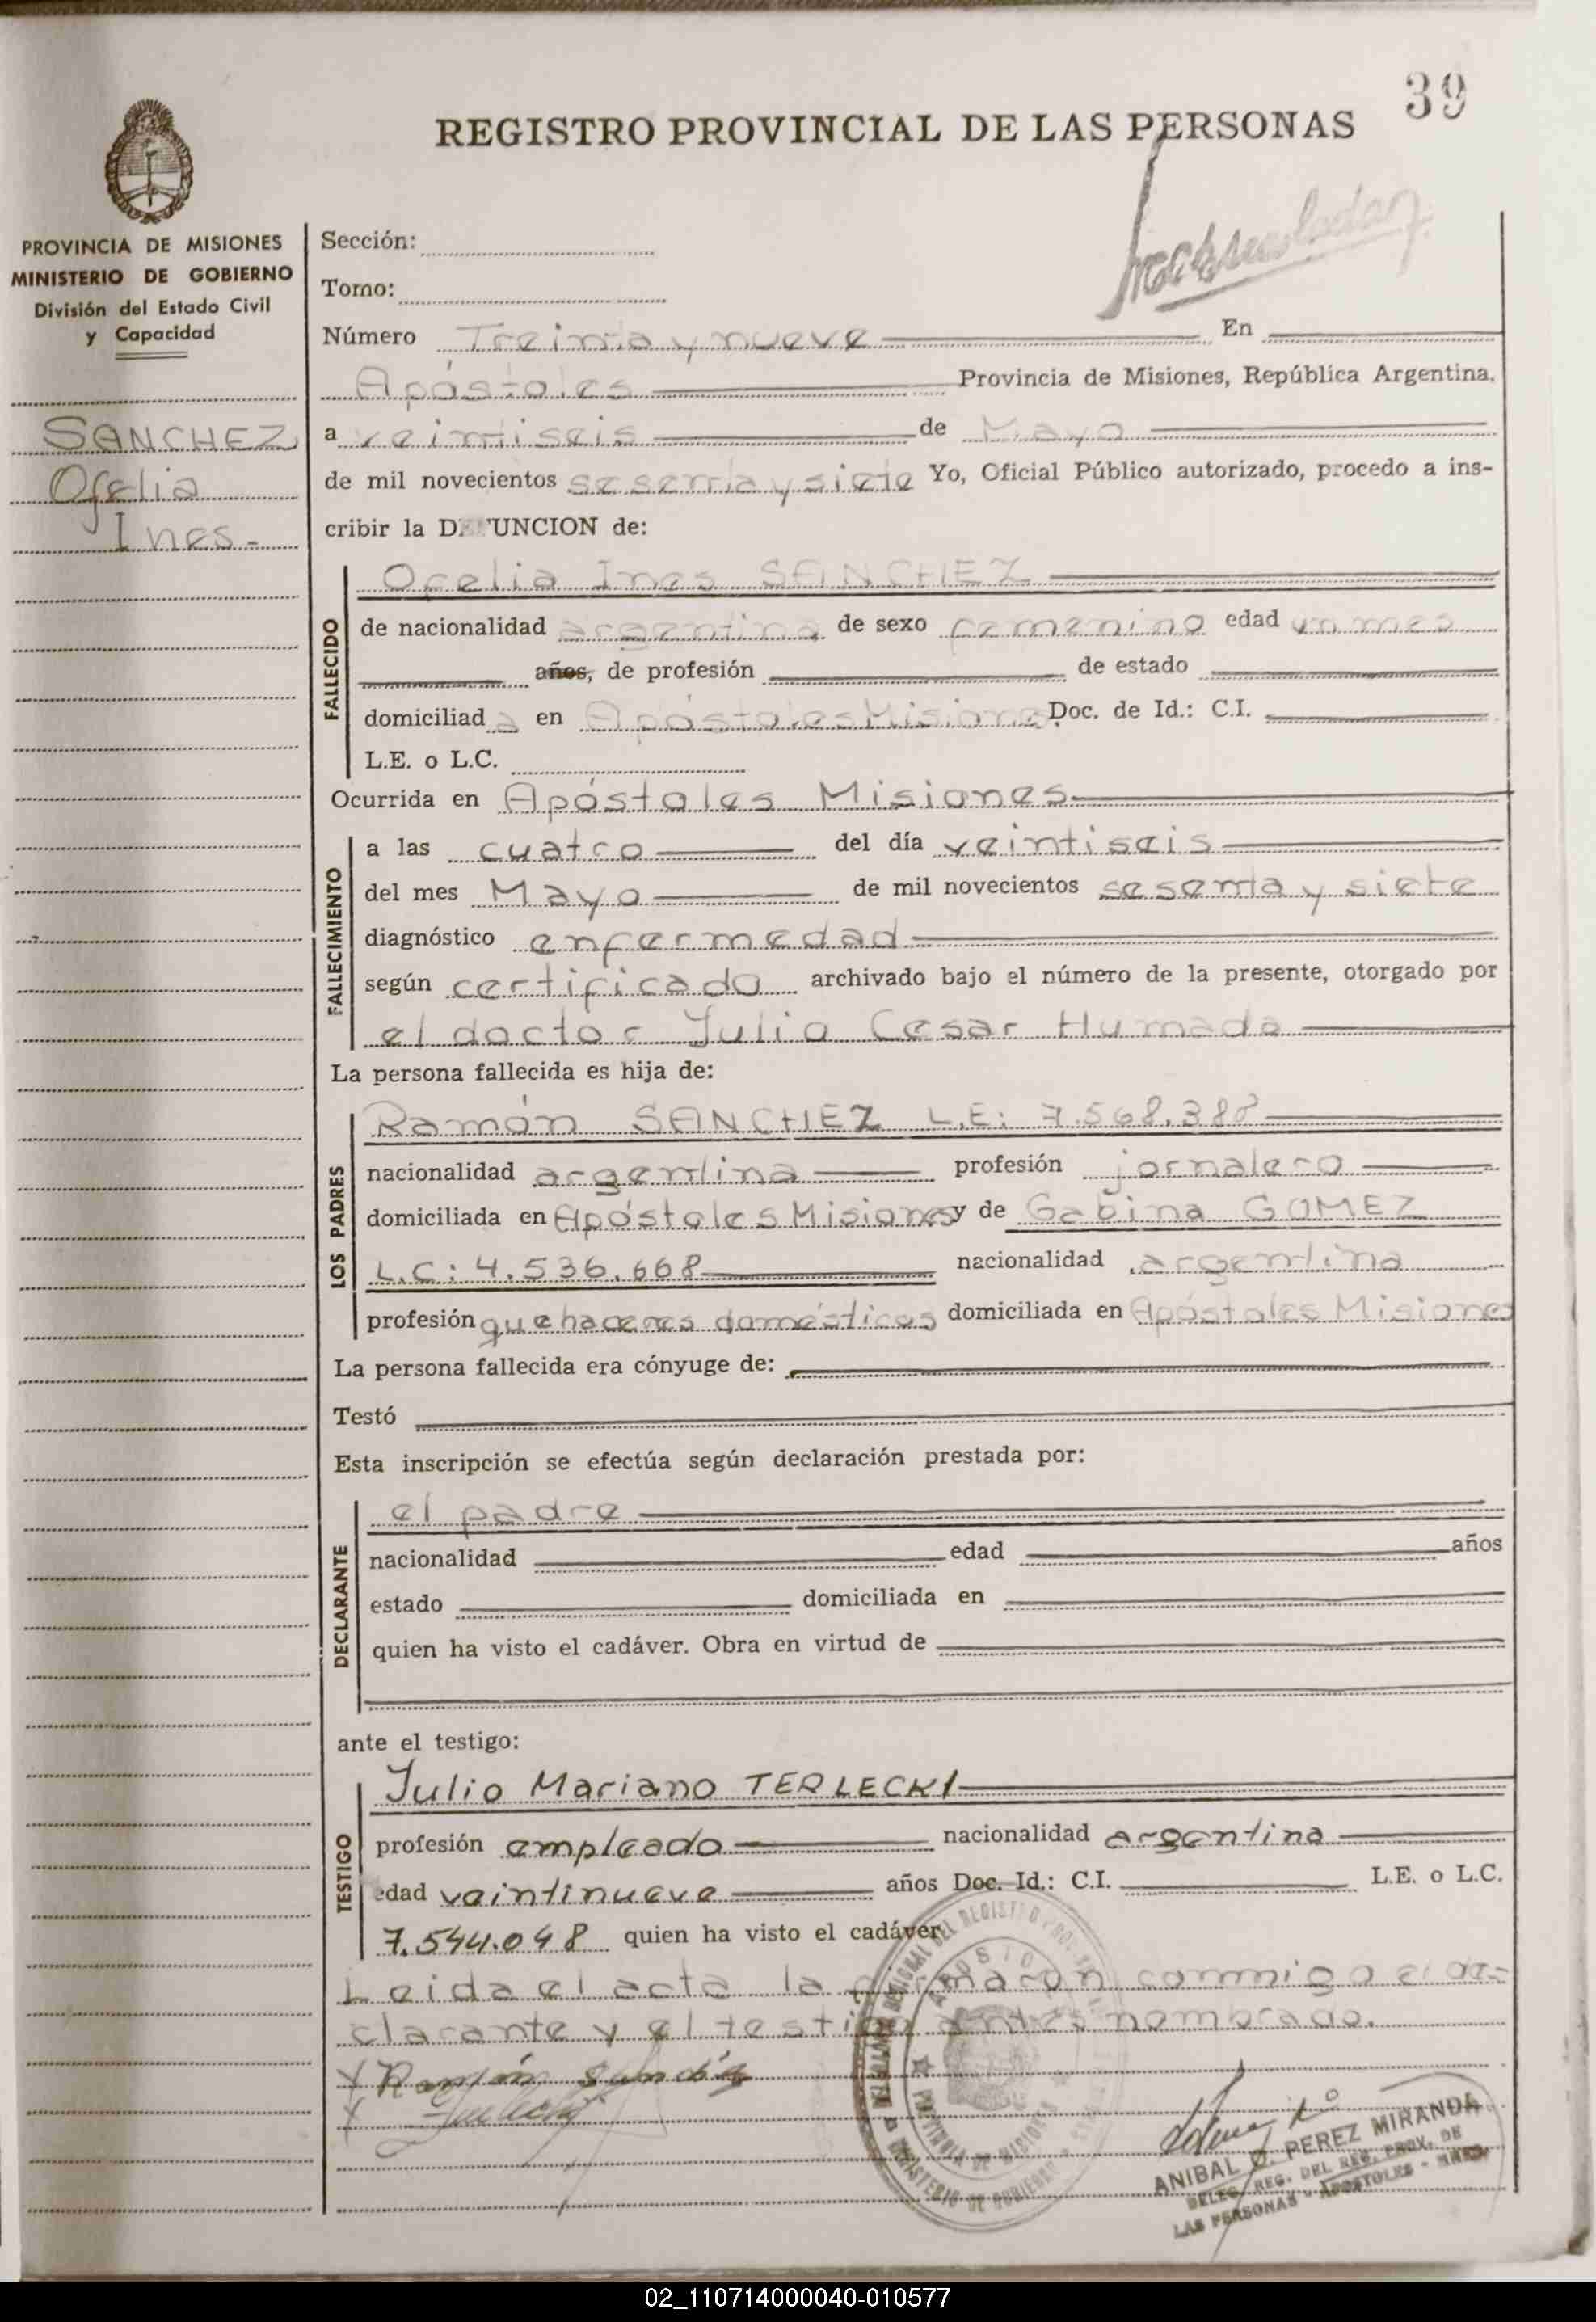 39
REGISTRO PROVINCIAL DE LAS PERSONAS
PROVINCIA DE MISIONES
MINISTERIO DE GOBIERNO
División del Estado Civil
y Capacidad
SANCHEZ
Ofelia
Ines.-
Sección:
Tomo:
Número Treinta y nueve En
Apóstoles Provincia de Misiones, República Argentina,
a veintiseis de Mayo
de mil novecientos sesenta y siete Yo, Oficial Público autorizado, procedo a ins-
cribir la DEFUNCION de:
FALLECIDO
Ofelia Ines SANCHEZ
de nacionalidad argentina de sexo femenino edad un mes
años, de profesión de estado
domiciliad a en Apóstoles Misiones Doc. de Id.: C.I.
L.E. o L.C.
Ocurrida en Apóstoles Misiones
FALLECIMIENTO
a las cuatro del día veintiseis
del mes Mayo de mil novecientos sesenta y siete
diagnóstico enfermedad
según certificado archivado bajo el número de la presente, otorgado por
el doctor Julio Cesar Humada
La persona fallecida es hija de:
LOS PADRES
Ramón SANCHEZ L.E: 7.568.388
nacionalidad argentina profesión jornalero
domiciliada en Apóstoles Misiones y de Gabina GOMEZ
L.C: 4.536.668 nacionalidad argentina
profesión quehaceres domésticos domiciliada en Apóstoles Misiones
La persona fallecida era cónyuge de:
Testó
Esta inscripción se efectúa según declaración prestada por:
DECLARANTE
el padre
nacionalidad edad años
estado domiciliada en
quien ha visto el cadáver. Obra en virtud de
ante el testigo:
TESTIGO
Julio Mariano TERLECKI
profesión empleado nacionalidad argentina
edad veintinueve años Doc. Id.: C.I. L.E. o L.C.
7.544.048 quien ha visto el cadáver
Leida el acta la firmaron conmigo el de-
clarante y el testigo antes nombrado.
Ramón
PROVINCIA DE MISIONES
MINISTERIO DE GOBIERNO
ANIBAL O. PEREZ MIRANDA
DELEG. REG. DEL REG. PROV. DE
LAS PERSONAS - APOSTOLES - MNES.
02_110714000040-010577